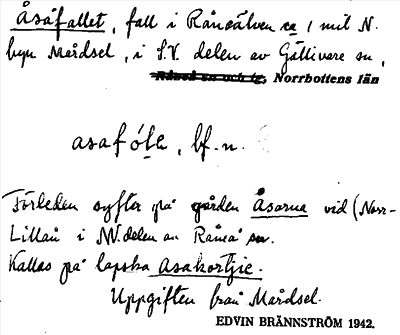 Åsåfallet, fall i Råneälven ca 1 mil N.
byn Mårdsel, i S.V. delen av Gällivare sn,
Råneå sn och tg, Norrbottens län
asafólε, bf.n.
Förleden syftar på gården Åsarna vid (Norr-
Lillån i NV. delen av Råneå sn.
Kallas på lapska Asakortjie.
Uppgiften från Mårdsel.
EDVIN BRÄNNSTRÖM 1942.